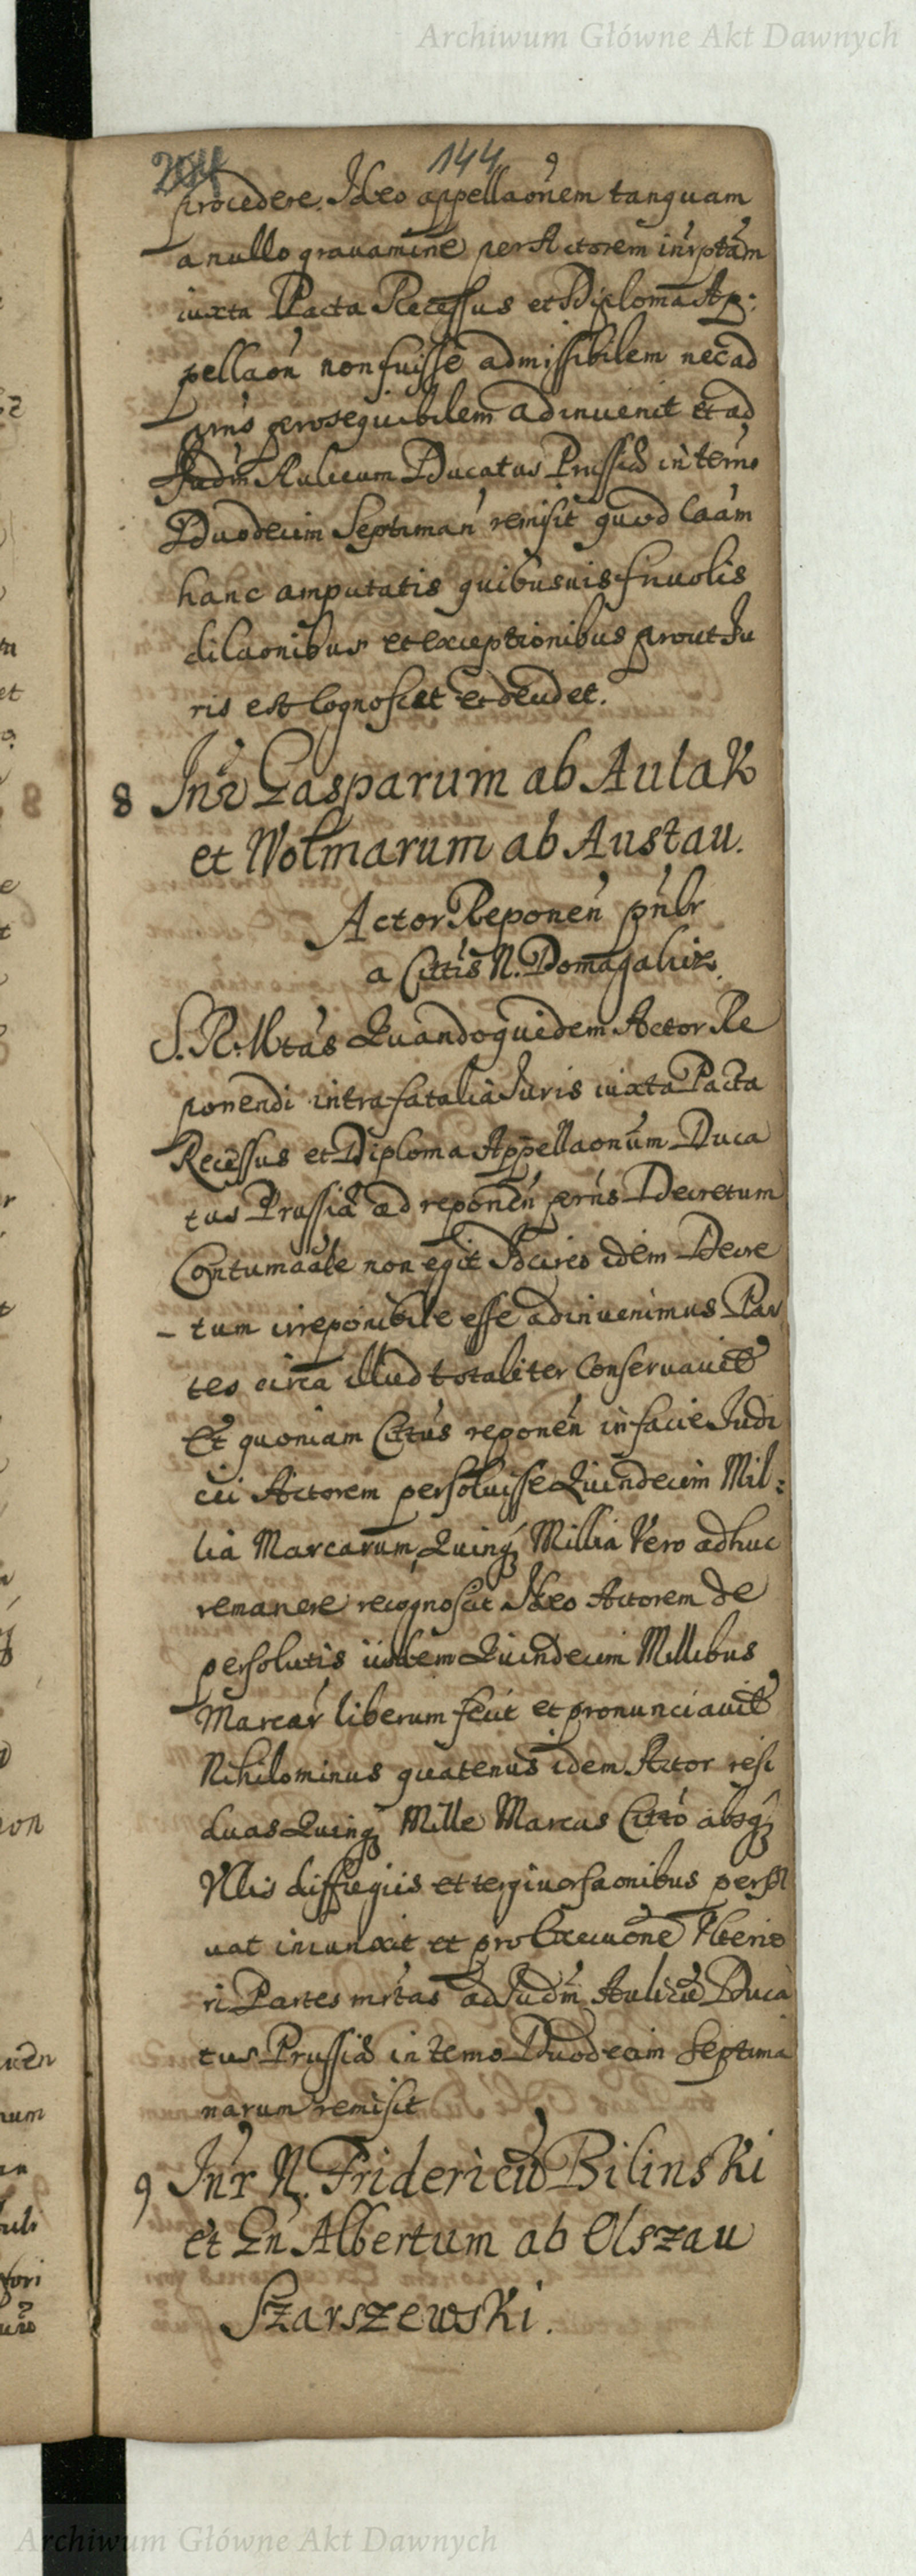 Archiwum Główne Akt Dawnych
144
procedere. Ideo appellaonem tanquam
a nullo grauamine per Actorem inrptam
iuxta Pacta Recessus et Diploma Ap:
pellaon non fuisse admissibilem nec ad
prns prosequibilem adinuenit et ad
Judm Aulicum Ducatus Prussiæ in temo
Duodecim Septiman remisit quod Caam
hanc amputatis quibusuis friuolis
dilaonibus et exceptionibus prout Ju
ris est Cognoscat et decidet.
8 Inr Gasparum ab Aulak
et Wolmarum ab Austau.
Actor Reponen pnbr
a Cittis N. Domagalicz.
S. R. Mtas Quandoquidem Actor Re
ponendi intra fatalia Juris iuxta Pacta
Recessus et Diploma Appellaonum Duca
tus Prussiæ ad reponen prns Decretum
Contumaale non egit Idcirco idem Decre
- tum irreponibile esse adinuenimus Par
tes circa illud totaliter Conseruauit
Et quoniam Cittus reponen in facie Judi
cii Actorem persoluisse Quindecim Mil:
lia Marcarum, Quinq Millia Vero adhuc
remanere recognoscit Ideo Actorem de
persolutis iisdem Quindecim Millibus
Marcar liberum fecit et pronunciauit
Nihilominus quatenus idem Actor resi
duas Quinq Mille Marcas Citto absq
Vllis diffugiis et tergiuersaonibus persol
uat iniunxit et pro Execuone Vlterio
ri Partes mrtas ad Judm Aulicu Duca
tus Prussiæ in temo Duodecim Septima
narum remisit
9 Inr N. Fridericu Bilinski
et Gn Albertum ab Olszau
Szarszewski.
Archiwum Główne Akt Dawnych